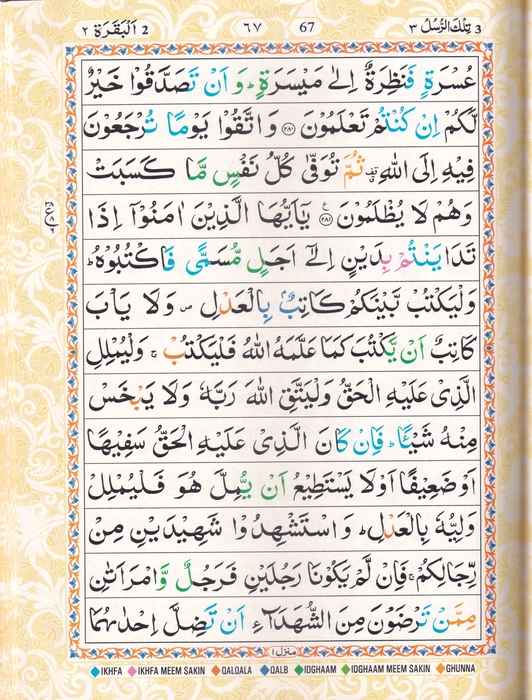 ٢ اَلْبَقَرَة 2 ٦٧ 67 ٣ تِلْكَ الرُّسُلُ 3
عُسْرَةٍ فَنَظِرَةٌ اِلٰى مَيْسَرَةٍ ؕ وَ اَنْ تَصَدَّقُوْا خَيْرٌ
لَّكُمْ اِنْ كُنْتُمْ تَعْلَمُوْنَ ﴿۲۸۰﴾ وَ اتَّقُوْا يَوْمًا تُرْجَعُوْنَ
فِيْهِ اِلَى اللّٰهِ ثُمَّ تُوَفّٰى كُلُّ نَفْسٍ مَّا كَسَبَتْ
وَهُمْ لَا يُظْلَمُوْنَ ﴿۲۸۱﴾ يٰۤاَيُّهَا الَّذِيْنَ اٰمَنُوْۤا اِذَا
تَدَايَنْتُمْ بِدَيْنٍ اِلٰۤى اَجَلٍ مُّسَمًّى فَاكْتُبُوْهُ ؕ
وَلْيَكْتُبْ بَّيْنَكُمْ كَاتِبٌۢ بِالْعَدْلِ ۪ وَلَا يَاْبَ
كَاتِبٌ اَنْ يَّكْتُبَ كَمَا عَلَّمَهُ اللّٰهُ فَلْيَكْتُبْ ۚ وَلْيُمْلِلِ
الَّذِيْ عَلَيْهِ الْحَقُّ وَلْيَتَّقِ اللّٰهَ رَبَّهٗ وَلَا يَبْخَسْ
مِنْهُ شَيْـًٔا ؕ فَاِنْ كَانَ الَّذِيْ عَلَيْهِ الْحَقُّ سَفِيْهًا
اَوْ ضَعِيْفًا اَوْ لَا يَسْتَطِيْعُ اَنْ يُّمِلَّ هُوَ فَلْيُمْلِلْ
وَلِيُّهٗ بِالْعَدْلِ ؕ وَ اسْتَشْهِدُوْا شَهِيْدَيْنِ مِنْ
رِّجَالِكُمْ ۚ فَاِنْ لَّمْ يَكُوْنَا رَجُلَيْنِ فَرَجُلٌ وَّ امْرَاَتٰنِ
مِمَّنْ تَرْضَوْنَ مِنَ الشُّهَدَآءِ اَنْ تَضِلَّ اِحْدٰىهُمَا
منزل ١
IKHFA IKHFA MEEM SAKIN QALQALA QALB IDGHAAM IDGHAAM MEEM SAKIN GHUNNA